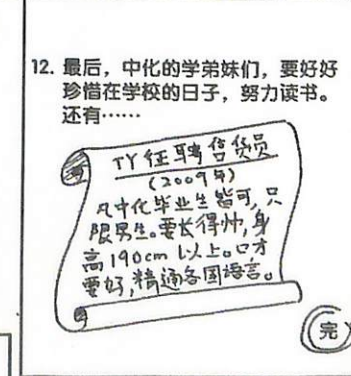 12. 最后，中化的学弟妹们，要好好
珍惜在学校的日子，努力读书。
还有……
TY征聘售货员
(2009年)
凡中化毕业生皆可，只
限男生。要长得帅，身
高190cm以上。口才
要好，精通各国语言。
完